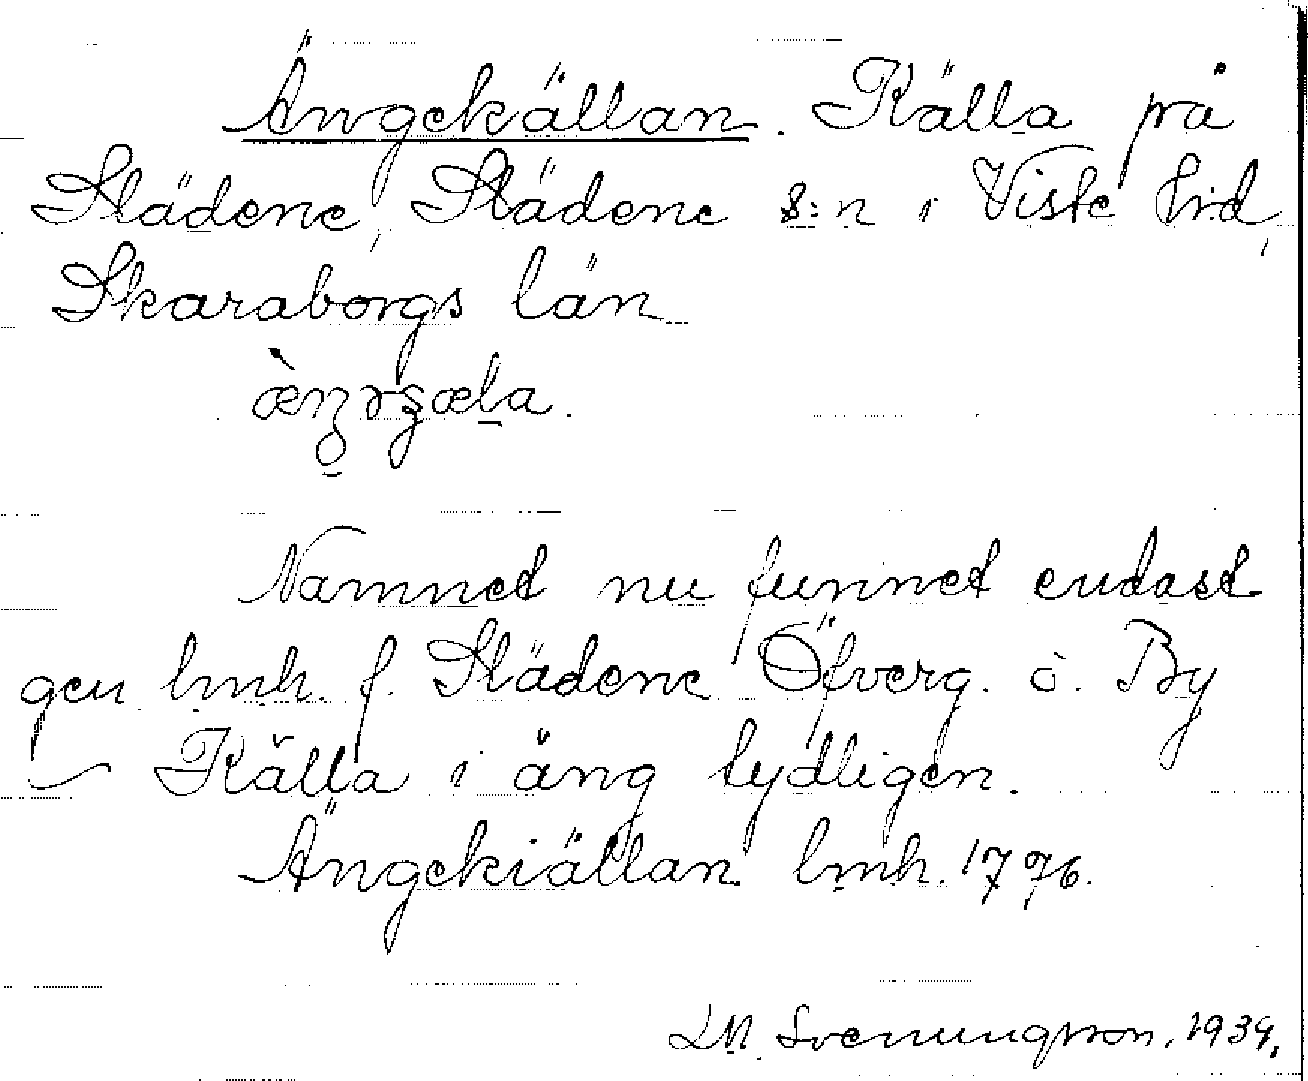 Ängekällan. Källa på
Slädene, Slädene s:n i Viste hrd,
Skaraborgs län
Namnet nu funnet endast
gen lmh. f. Slädene Öfverg. o. By
– Källa i äng tydligen.
Ängekiällan lmh. 1776.
L.M. Svenungsson, 1934.